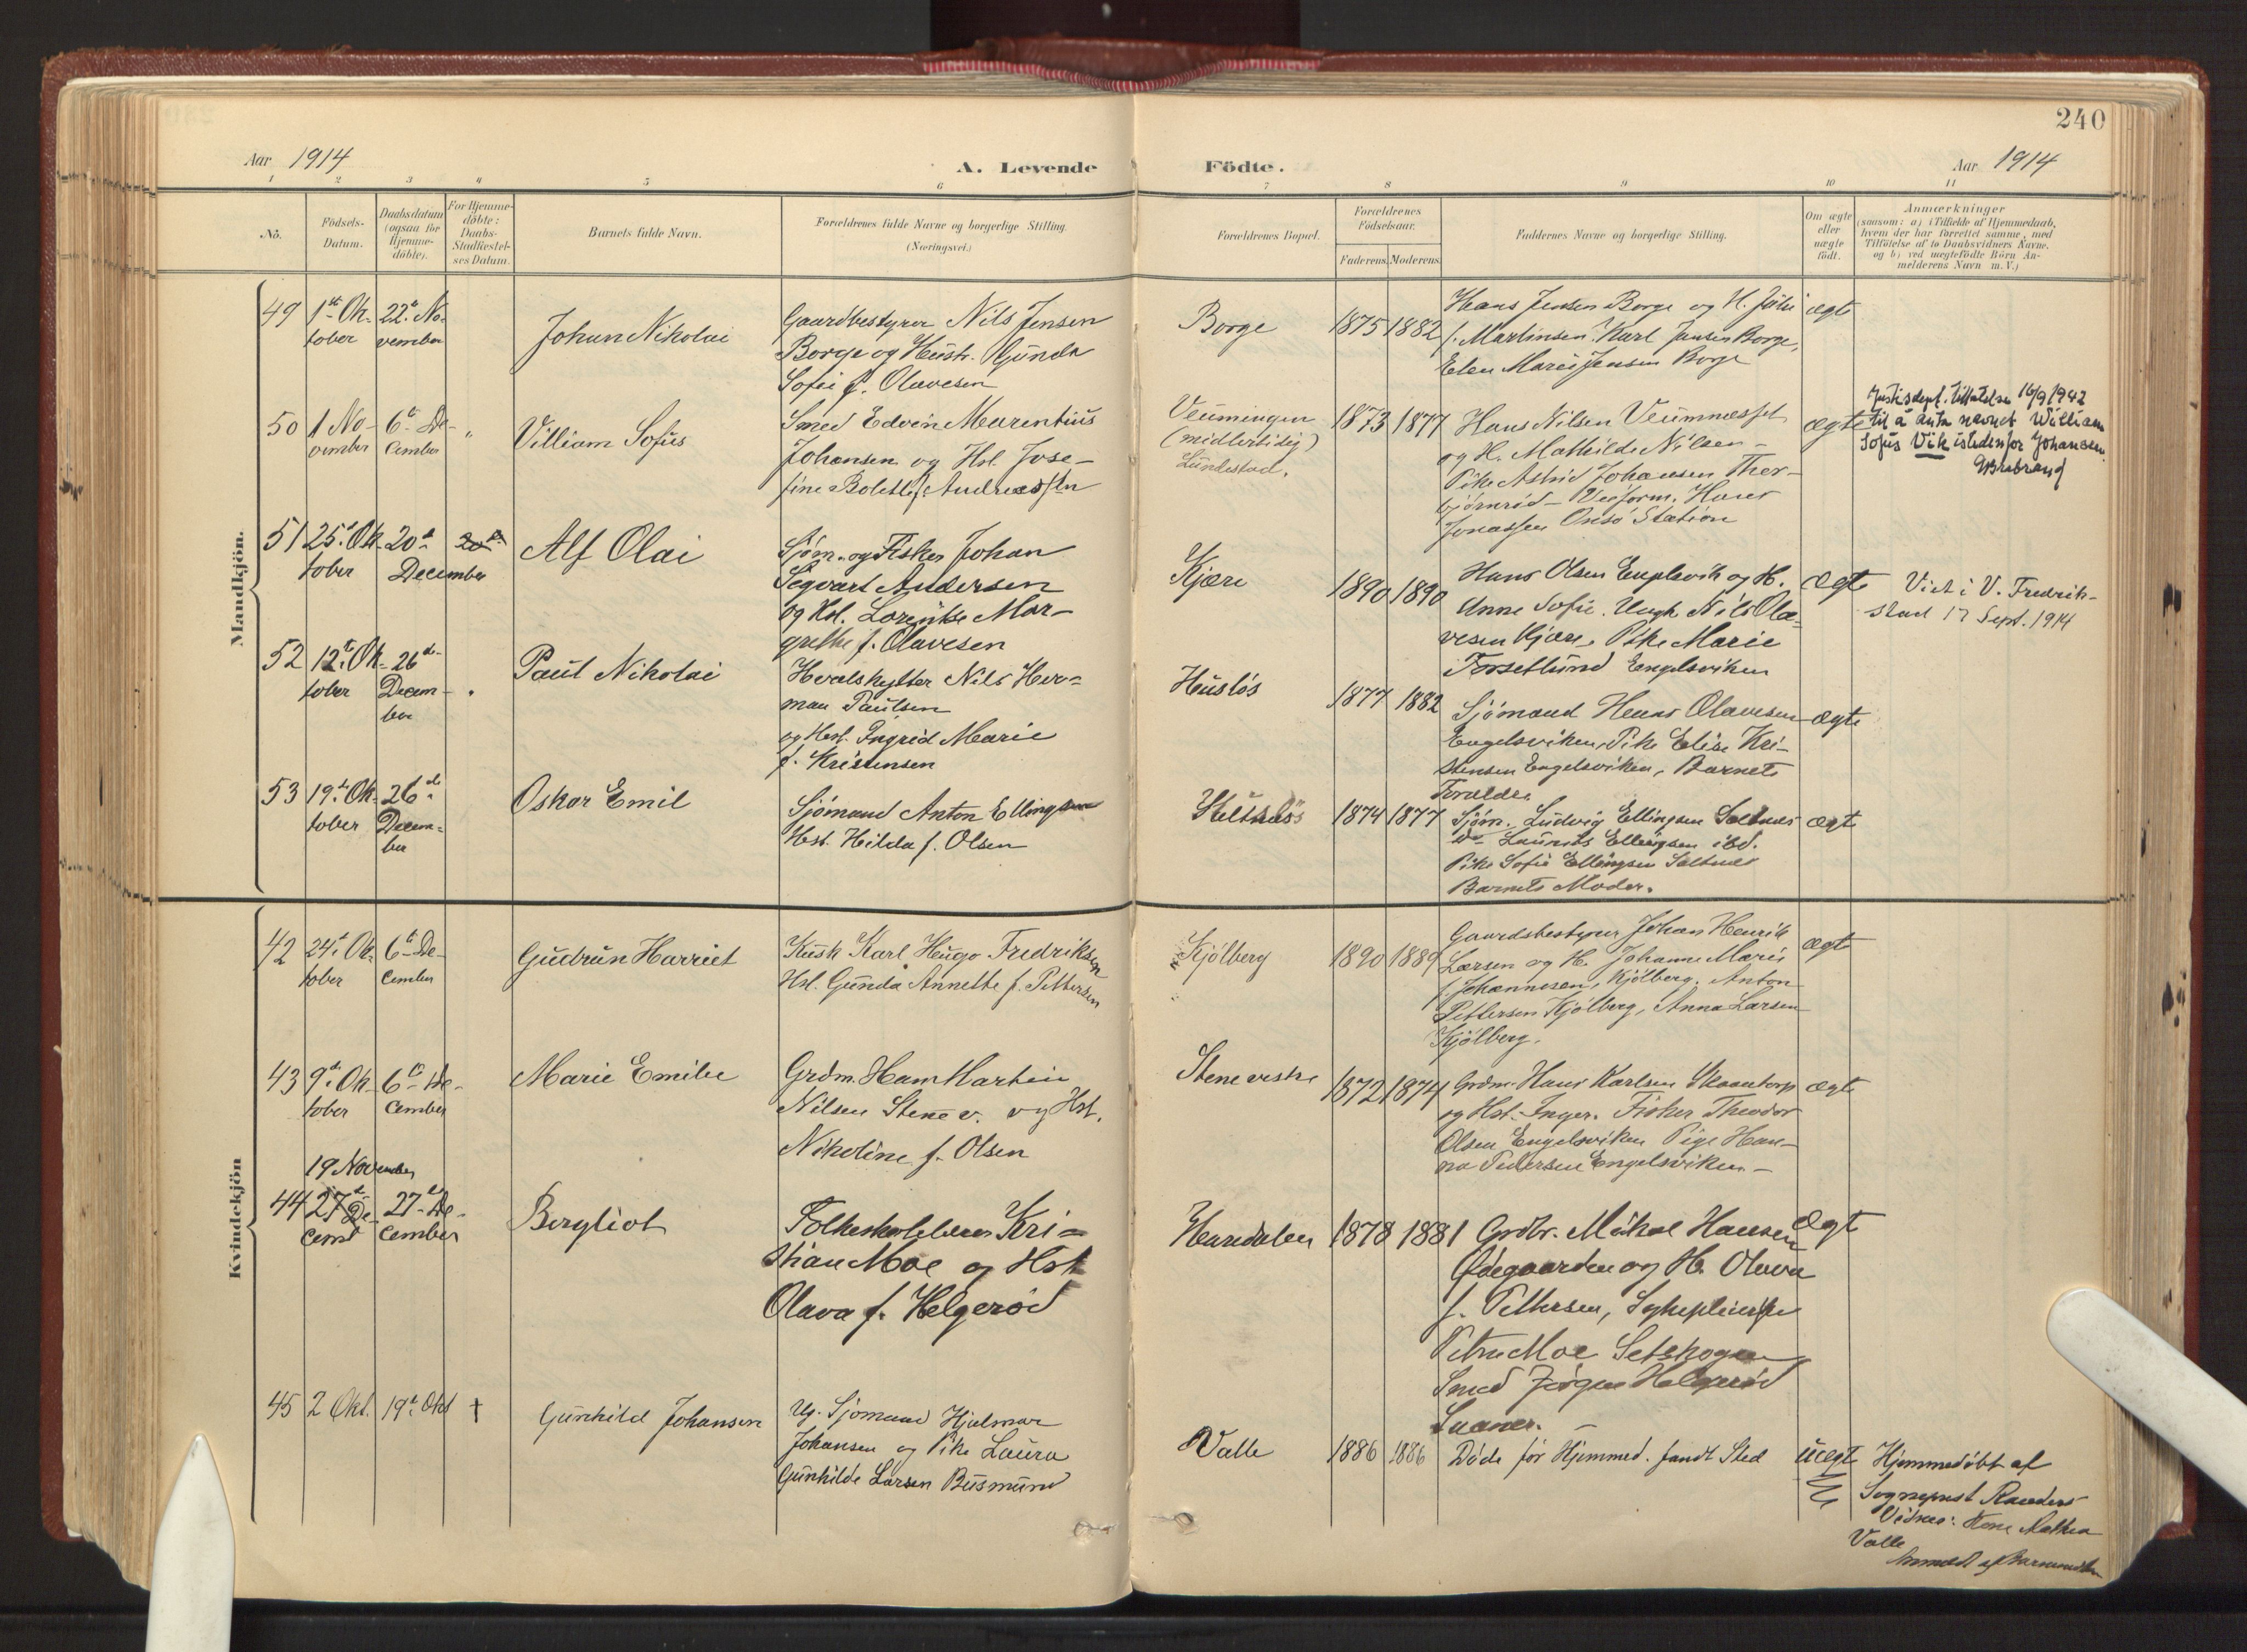 240
Aar 1914
A. Levende Födte.
Aar 1914
1 2 3 4 5 6 7 8 9 10 11
No.
Födsels-
Datum.
Daabsdatum
(ogsaa for
Hjemme-
döbte).
For Hjemme-
döbte:
Daabs-
Stadfæstel-
ses Datum.
Barnets fulde Navn.
Forældrenes fulde Navne og borgerlige Stilling.
(Næringsvei.)
Forældrenes Bopæl.
Forældrenes
Födselsaar.
Faderens. Moderens.
Faddernes Navne og borgerlige Stilling.
Om ægte
eller
uægte
födt.
Anmærkninger
(saasom: a) i Tilfælde af Hjemmedaab,
hvem der har forrettet samme, med
Tilföielse af to Daabsvidners Navne.
og b) ved uægtefödte Börn An-
melderens Navn m. V.)
Mandkjön.
49
1ste Ok-
tober
22de No-
vember
Johan Nikolai
Gaardbestyrer Nils Jensen
Borge og Hustr. Gunda
Sofie f. Olavesen
Borge
1875 1882
Hans Jensen Borge og H. Julie
f. Martinsen. Karl Jensen Borge,
Elen Marie Jensen Borge
ægte
50
1 No-
vember
6te De-
cember
"
Villiam Sofus
Smed Edvin Marentius
Johansen og Hst. Jose-
fine Bolette f. Andreassen
Veumingen
(midlertidig)
Lundestad.
1873 1877
Hans Nilsen Veumnesset
og H. Mathilde Nilsen -
Pike Astrid Johansen Thor-
bjørnrød - Veiform. Hans
Jonassen Onsö Station
ægte
Justisdept. tillatelse 16/9 1942
til å anta navnet William
Sofus Vik istedenfor Johansen.
51
25de Ok-
tober
20de
December
20de
Alf Olai
Sjøm. og Fisker Johan
Segvart Andersen
og Hst. Lorentse Mar-
grethe f. Olavesen
Kjære
1890 1890
Hans Olsen Engelsvik og H.
Anne Sofie. Ungk. Nils Ola-
vesen Kjære, Pike Marie
Torsetlund Engelsviken
Ægte
Viet i V. Fredrik-
stad 17 Sept. 1914
52
12te Ok-
tober
26de
Decem-
ber
"
Paul Nikolai
Hvalskytter Nils Her-
man Paulsen
og Hust. Ingrid Marie
f. Kristensen
Husløs
1877 1882
Sjømand Hans Olavesen
Engelsviken, Pike Elise Kri-
stensen Engelsviken, Barnets
Forældre.
ægte
53
19de Ok-
tober
26de
Decem-
ber
Oskar Emil
Sjömand Anton Ellingsen
Hst. Hilda f. Olsen
1874 1877
Sjøm. Ludvig Ellingsen Saltnes
do Laurits Ellingsen ibd.
Pike Sofie Ellingsen Saltnes
Barnets Moder.
ægte
Kvindekjön
42
24de Ok-
tober
6te De-
cember
Gudrun Harriet
Kusk Karl Hugo Fredriksen
Hst. Gunda Annette f. Pettersen
Kjölberg
1890 1889
Gaardsbestyrer Johan Henrik
Larsen og H. Johanne Marie
f. Johannesen, Kjölberg. Anton
Pettersen Kjölberg, Anna Larsen
Kjölberg.
ægte
43
9de Ok-
tober
6te De-
cember
Marie Emilie
Grdm. Hans Martin
Nilsen Stene v. og Hst.
Nikoline f. Olsen
Stene vestre
1872 1874
Grdm. Hans Karlsen
og Hst. Inger. Fisker Theodor
Olsen Engelsviken Pige Han-
na Pedersen Engelsviken -
ægte
19 November
44
27de De-
cem
27de De-
cember
Bergliot
Folkeskolelærer Kri-
stian Moe og Hst
Olava f. Helgerød
Haredalen
1878 1881
Grdbr. Mikal Hansen
Ødegaarden og H. Olava
f. Pettersen, Sykepleierske
Petra Moe Setskogen
Smed Jørgen Helgerød
ægt
45
2 Okt.
19de Okt
†
Gunhild Johansen
Ug. Sjømand Hjalmar
Johansen og Pike Laura
Gunhilde Larsen Busmund
Valle
1886 1886
Døde før Hjemmed. fandt Sted
uægt
Hjemmedøbt af
Sogneprest
Vidner: Kone Mathea
Valle
Anmeldt af Barnemoderen